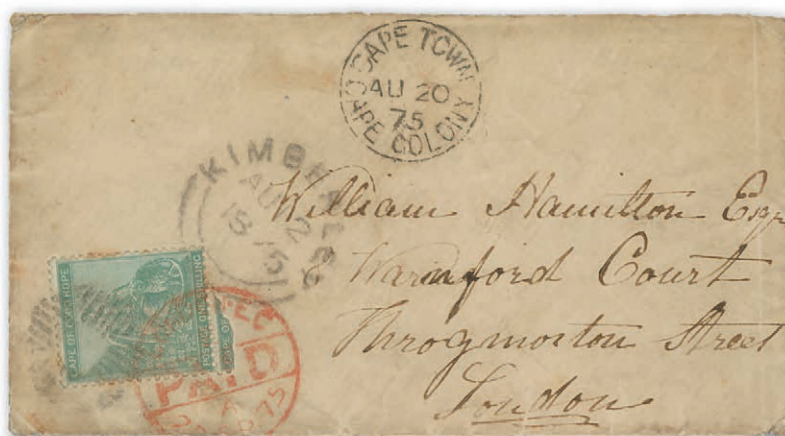 CAPE TOWN
AU 20
75
CAPE COLONY
KIMBERLEY
AU 12
1875
William Hamilton Esqr
Warnford Court
Throgmorton Street
London
CAPE OF GOOD HOPE
POSTAGE ONE SHILLING
CAPE OF
PAID
75